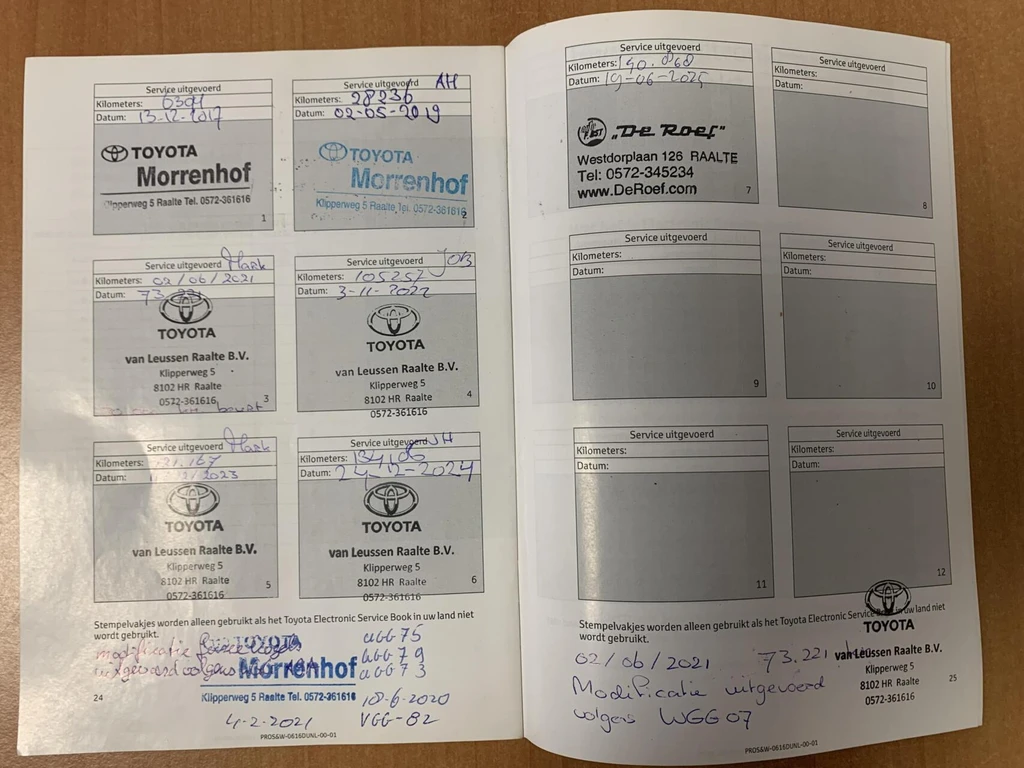 Service uitgevoerd
Kilometers: 6304
Datum: 13-12-2017
TOYOTA
Morrenhof
Klipperweg 5 Raalte Tel. 0572-361616
1
Service uitgevoerd AH
Kilometers: 28236
Datum: 02-05-2019
TOYOTA
Morrenhof
Klipperweg 5 Raalte Tel. 0572-361616
2
Service uitgevoerd Mark
Kilometers: 02/06/2021
Datum: 73.221
TOYOTA
van Leussen Raalte B.V.
Klipperweg 5
8102 HR Raalte
0572-361616
3
Service uitgevoerd JOB
Kilometers: 105257
Datum: 3-11-2022
TOYOTA
van Leussen Raalte B.V.
Klipperweg 5
8102 HR Raalte
0572-361616
4
Service uitgevoerd Mark
Kilometers: 121.167
Datum: 2023
TOYOTA
van Leussen Raalte B.V.
Klipperweg 5
8102 HR Raalte
0572-361616
5
Service uitgevoerd JH
Kilometers:
Datum: 24-12-2024
TOYOTA
van Leussen Raalte B.V.
Klipperweg 5
8102 HR Raalte
0572-361616
6
Stempelvakjes worden alleen gebruikt als het Toyota Electronic Service Book in uw land niet
wordt gebruikt.
modificatie
uitgevoerd volgens
TOYOTA
Morrenhof
Klipperweg 5 Raalte Tel. 0572-361616
4-2-2021
UGG75
UGG79
UGG73
18-6-2020
VGG-82
24
PROS&W-0616DUNL-00-01
Service uitgevoerd
Kilometers: 190.868
Datum: 19-06-2025
"De Roef"
Westdorplaan 126 RAALTE
Tel: 0572-345234
www.DeRoef.com
7
Service uitgevoerd
Kilometers:
Datum:
8
Service uitgevoerd
Kilometers:
Datum:
9
Service uitgevoerd
Kilometers:
Datum:
10
Service uitgevoerd
Kilometers:
Datum:
11
Service uitgevoerd
Kilometers:
Datum:
12
Stempelvakjes worden alleen gebruikt als het Toyota Electronic Service Book in uw land niet
wordt gebruikt.
02/06/2021 73.221
Modificatie uitgevoerd
volgens WGG07
TOYOTA
van Leussen Raalte B.V.
Klipperweg 5
8102 HR Raalte
0572-361616
25
PROS&W-0616DUNL-00-01